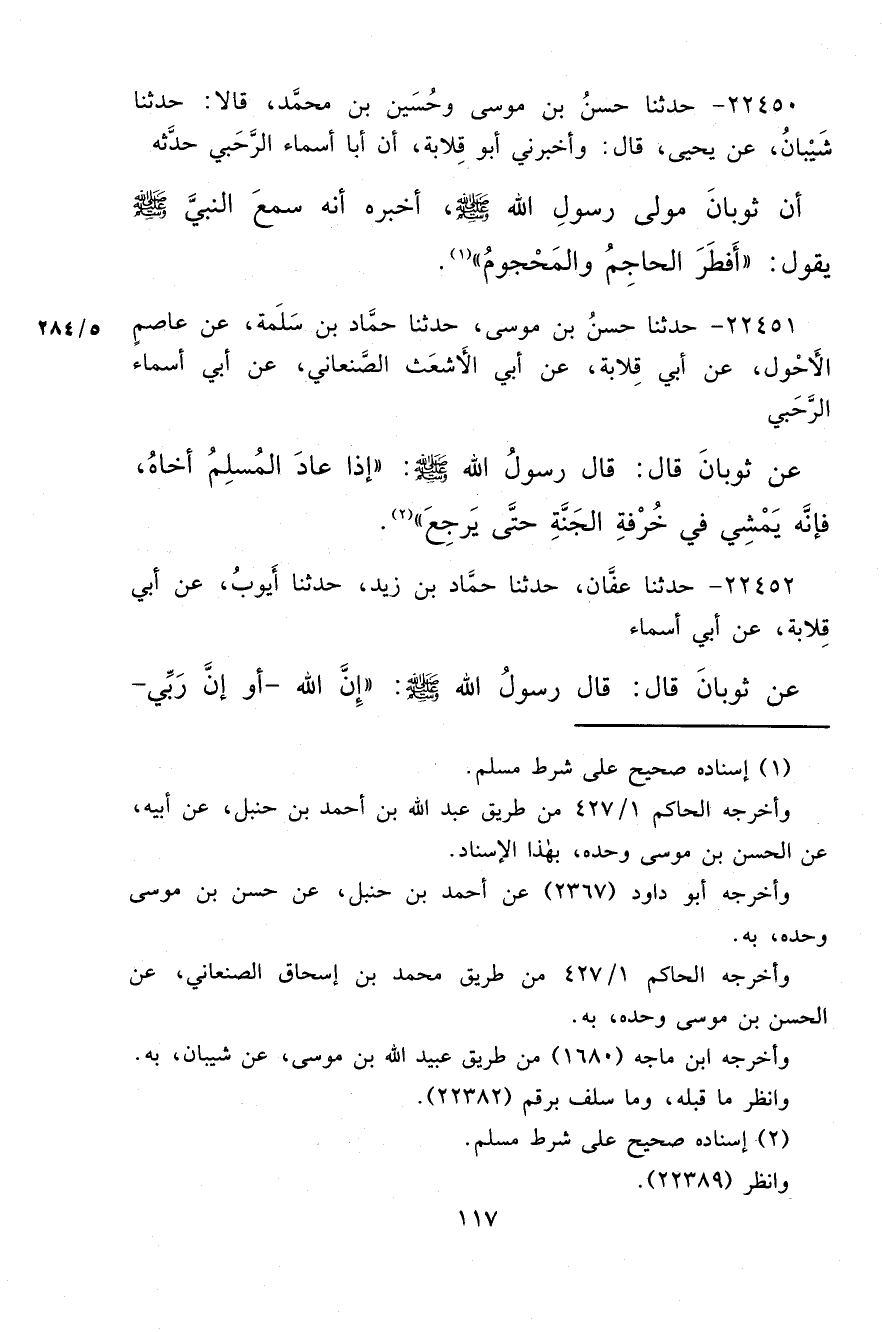 ٢٢٤٥٠- حدثنا حسنُ بن موسى وحُسَين بن محمَّد، قالا: حدثنا
شَيْبانُ، عن يحيى، قال: وأخبرني أبو قِلابة، أن أبا أسماء الرَّحَبي حدَّثه
أن ثوبانَ مولى رسولِ الله ﷺ، أخبره أنه سمعَ النبيَّ ﷺ
يقول: «أَفطَرَ الحاجِمُ والمَحْجومُ»(١).
٢٢٤٥١- حدثنا حسنُ بن موسى، حدثنا حمَّاد بن سَلَمة، عن عاصمٍ
٢٨٤/٥
الأَحْول، عن أبي قِلابة، عن أبي الأَشعَث الصَّنعاني، عن أبي أسماءَ
الرَّحَبي
عن ثوبانَ قال: قال رسولُ الله ﷺ: «إذا عادَ المُسلِمُ أخاهُ،
فإنَّه يَمْشِي في خُرْفةِ الجَنَّةِ حتَّى يَرجِعَ»(٢).
٢٢٤٥٢- حدثنا عفَّان، حدثنا حمَّاد بن زيد، حدثنا أَيوبُ، عن أبي
قِلابة، عن أبي أسماء
عن ثوبانَ قال: قال رسولُ الله ﷺ: «إِنَّ الله -أو إنَّ رَبِّي-
(١) إسناده صحيح على شرط مسلم.
وأخرجه الحاكم ٤٢٧/١ من طريق عبد الله بن أحمد بن حنبل، عن أبيه،
عن الحسن بن موسى وحده، بهٰذا الإسناد.
وأخرجه أبو داود (٢٣٦٧) عن أحمد بن حنبل، عن حسن بن موسى
وحده، به.
وأخرجه الحاكم ٤٢٧/١ من طريق محمد بن إسحاق الصنعاني، عن
الحسن بن موسى وحده، به.
وأخرجه ابن ماجه (١٦٨٠) من طريق عبيد الله بن موسى، عن شيبان، به.
وانظر ما قبله، وما سلف برقم (٢٢٣٨٢).
(٢) إسناده صحيح على شرط مسلم.
وانظر (٢٢٣٨٩).
١١٧